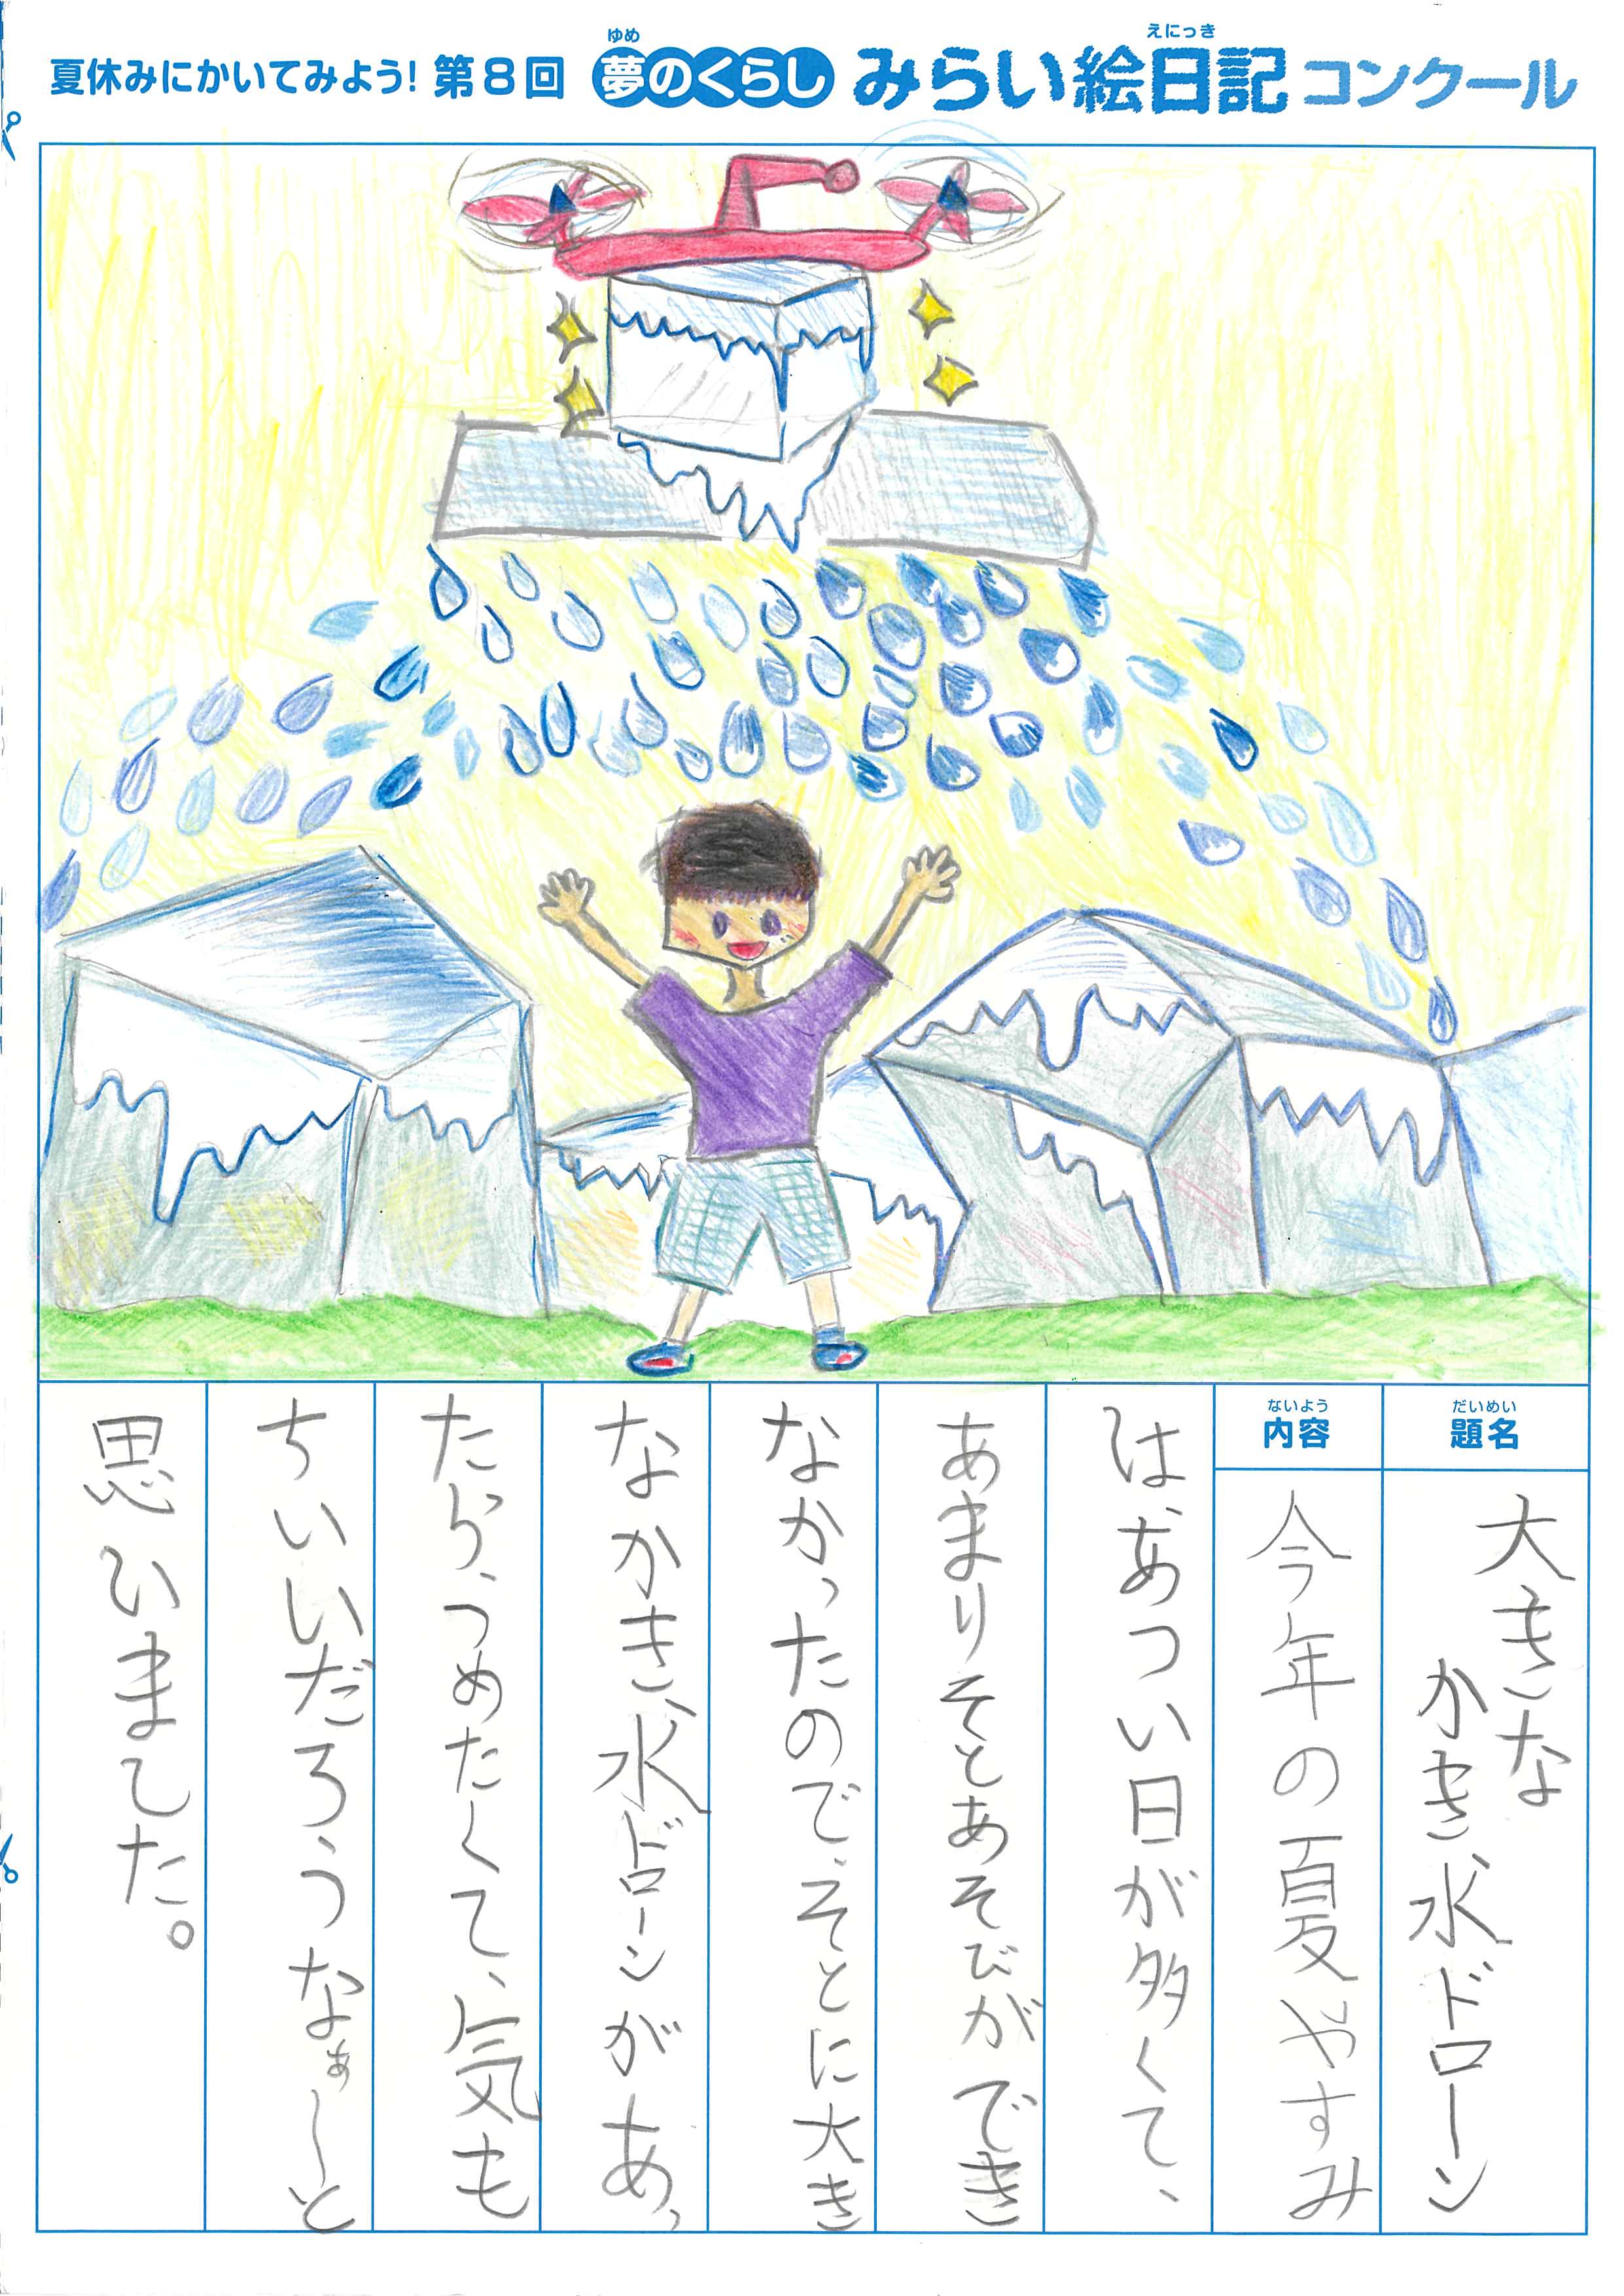 夏休みにかいてみよう！ 第8回 夢のくらし みらい絵日記 コンクール
ゆめ
えにっき
だいめい
題名
大きな
かき氷ドローン
ないよう
内容
今年の夏やすみ
は、あつい日が多くて、
あまりそとあそびができ
なかったので、そとに大き
なかき氷ドローンがあっ
たら、つめたくて、気も
ちいいだろうなぁーと
思いました。